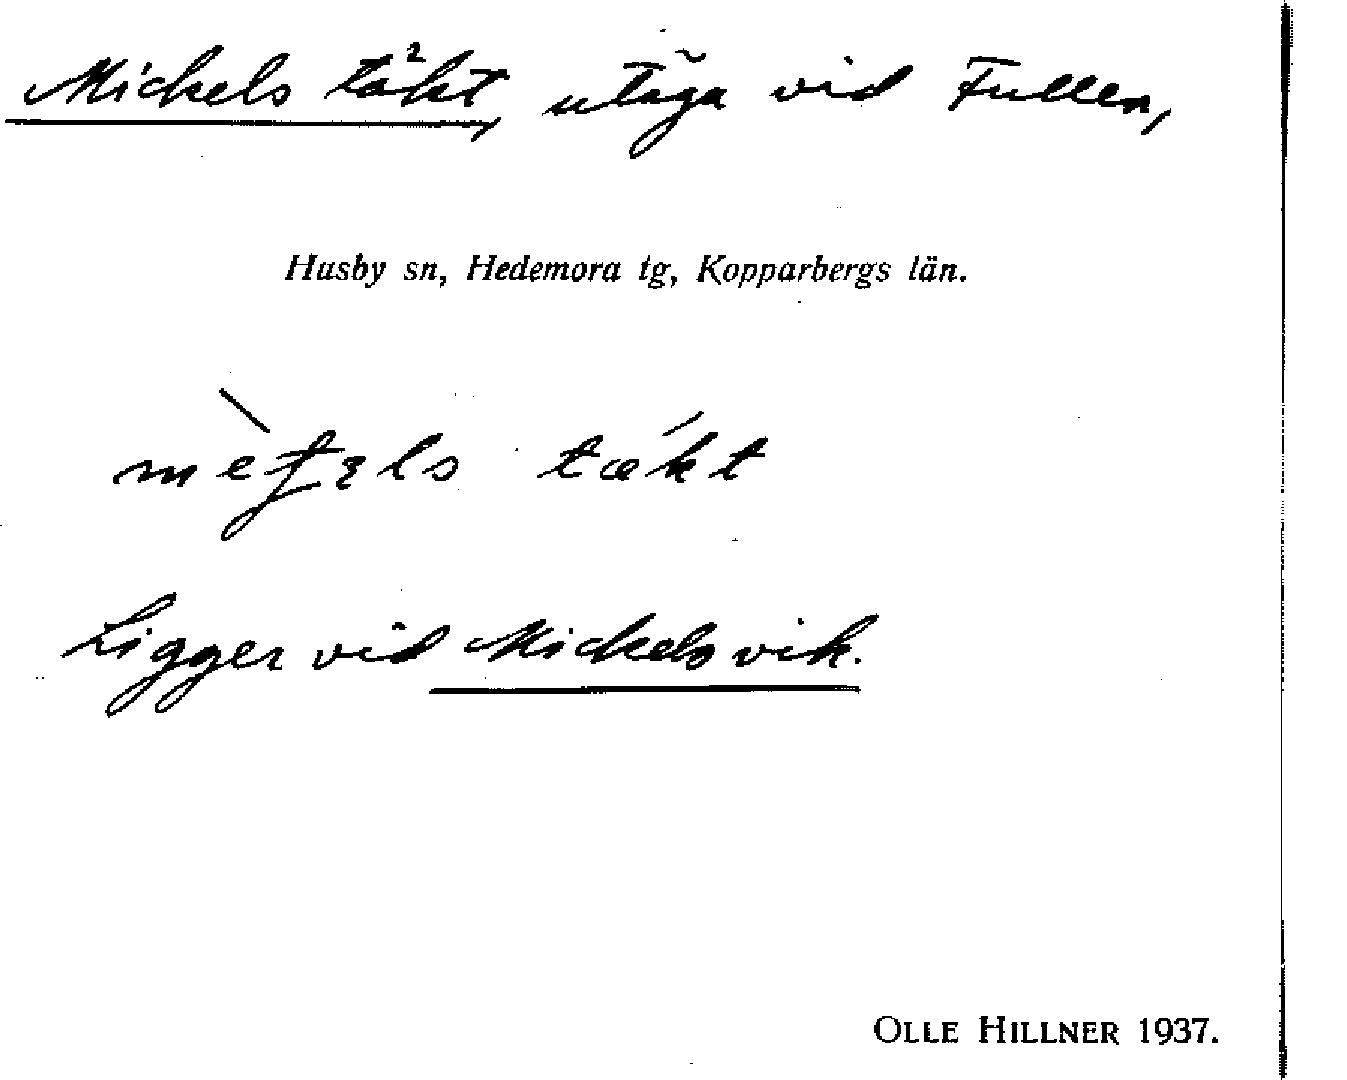 Mickels täkt, utäga vid Fullen,
Husby sn, Hedemora tg, Kopparbergs län.
täkt
Ligger vid Mickelsvik.
OLLE HILLNER 1937.